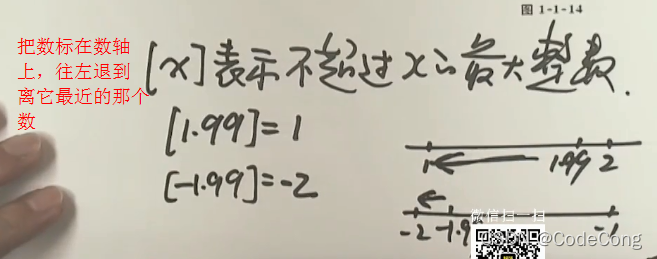 图 1-1-14
把数标在数轴
上，往左退到
离它最近的那个
数
[x]表示不超过x的最大整数.
[1.99]=1
[-1.99]=-2
1 1.99 2
-2 -1.9 -1
微信扫一扫
@CodeCong